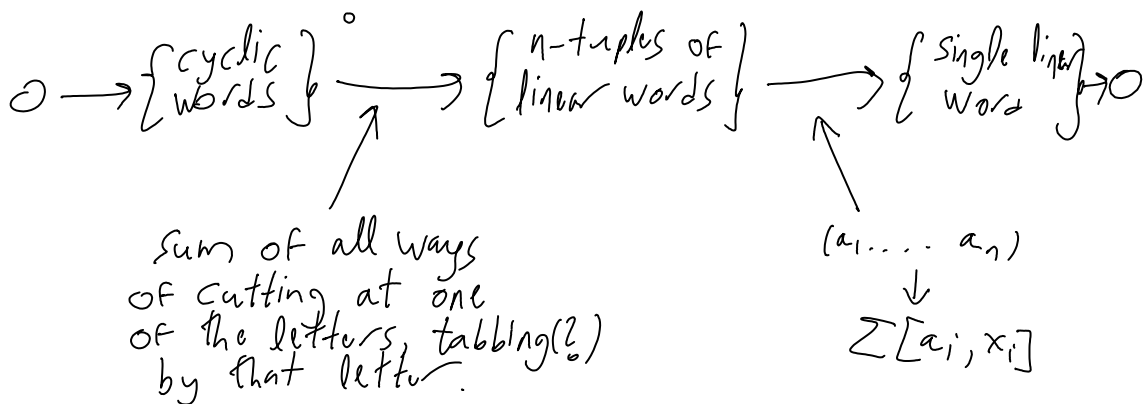 0 → {cyclic words} → {n-tuples of linear words} → {single linear word} → 0
sum of all ways
of cutting at one
of the letters, tabbing(?)
by that letter.
(a₁.... aₙ)
↓
Σ[aᵢ, xᵢ]